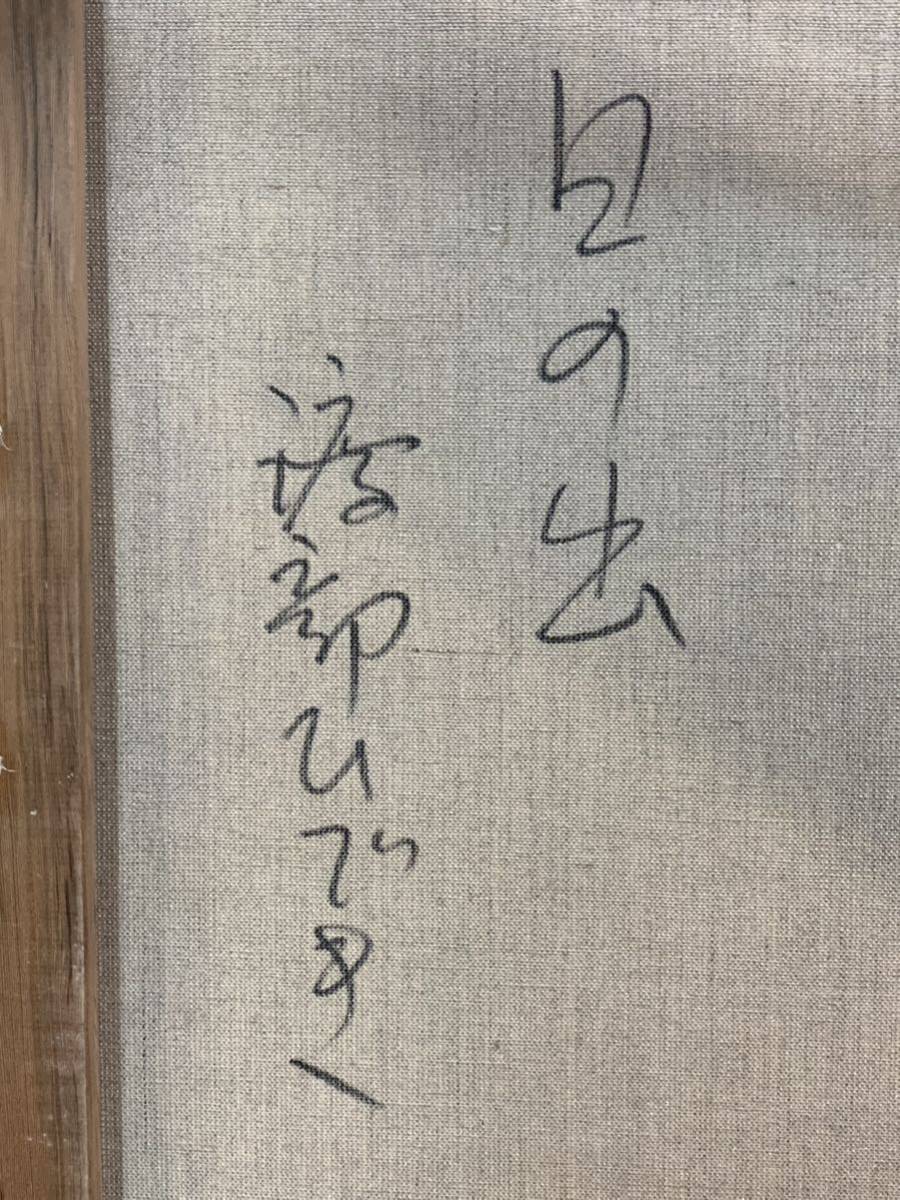 日の出
渡部ひでき